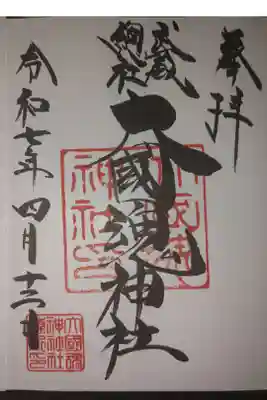 奉拝
武蔵
總社
大國魂神社
令和七年四月十二日
大國魂
神社印
大國魂
神社